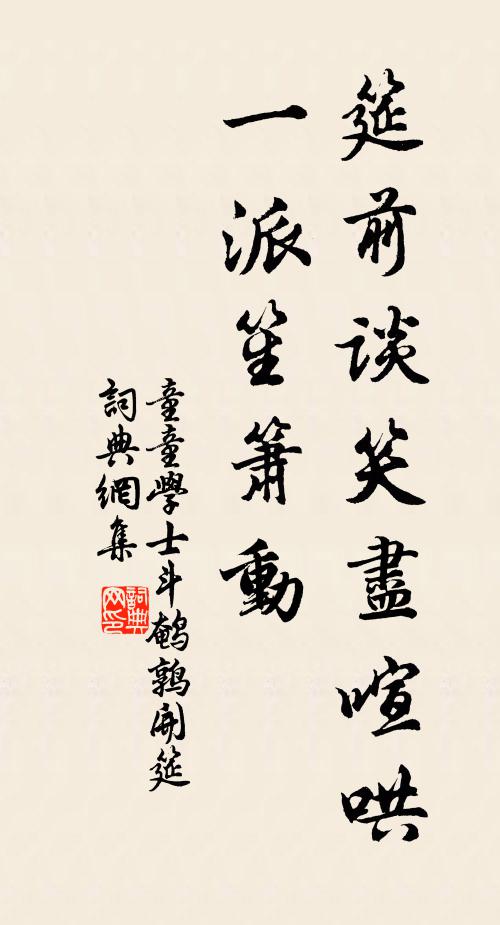 筵前談笑盡喧哄
一派笙簫動
童童學士斗鵪鶉開筵
詞典網集
詞典网印